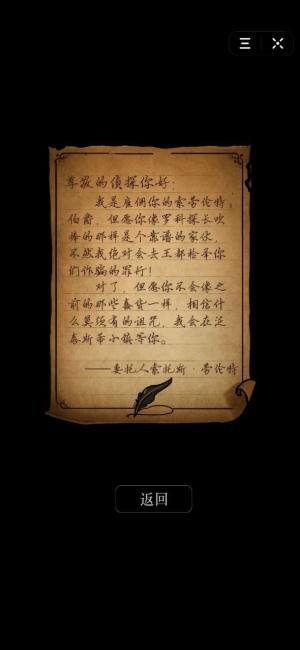 尊敬的侦探你好:
我是雇佣你的索劳伦特
伯爵，但愿你像罗科探长吹
捧的那样是个靠谱的家伙，
不然我绝对会去王都检举你
们诈骗的罪行!
对了，但愿你不会像之
前的那些蠢货一样，相信什
么莫须有的诅咒，我会在泛
泰斯蒂小镇等你。
——委托人索托斯·劳伦特
返回